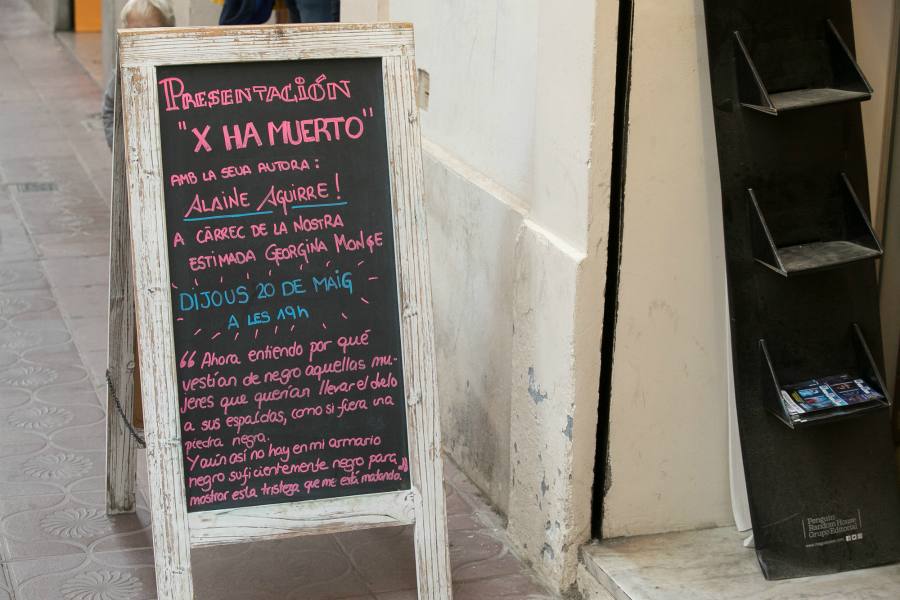 PRESENTACIÓN
"X HA MUERTO"
AMB LA SEUA AUTORA:
ALAINE AGUIRRE!
A CÀRREC DE LA NOSTRA
ESTIMADA GEORGINA MONGE
DIJOUS 20 DE MAIG
A LES 19h
"Ahora entiendo por qué
vestían de negro aquellas mu-
jeres que querían llevar el duelo
a sus espaldas, como si fuera una
piedra negra.
Y aún así no hay en mi armario
negro suficientemente negro para
mostrar esta tristeza que me está matando."
Penguin
Random House
Grupo Editorial